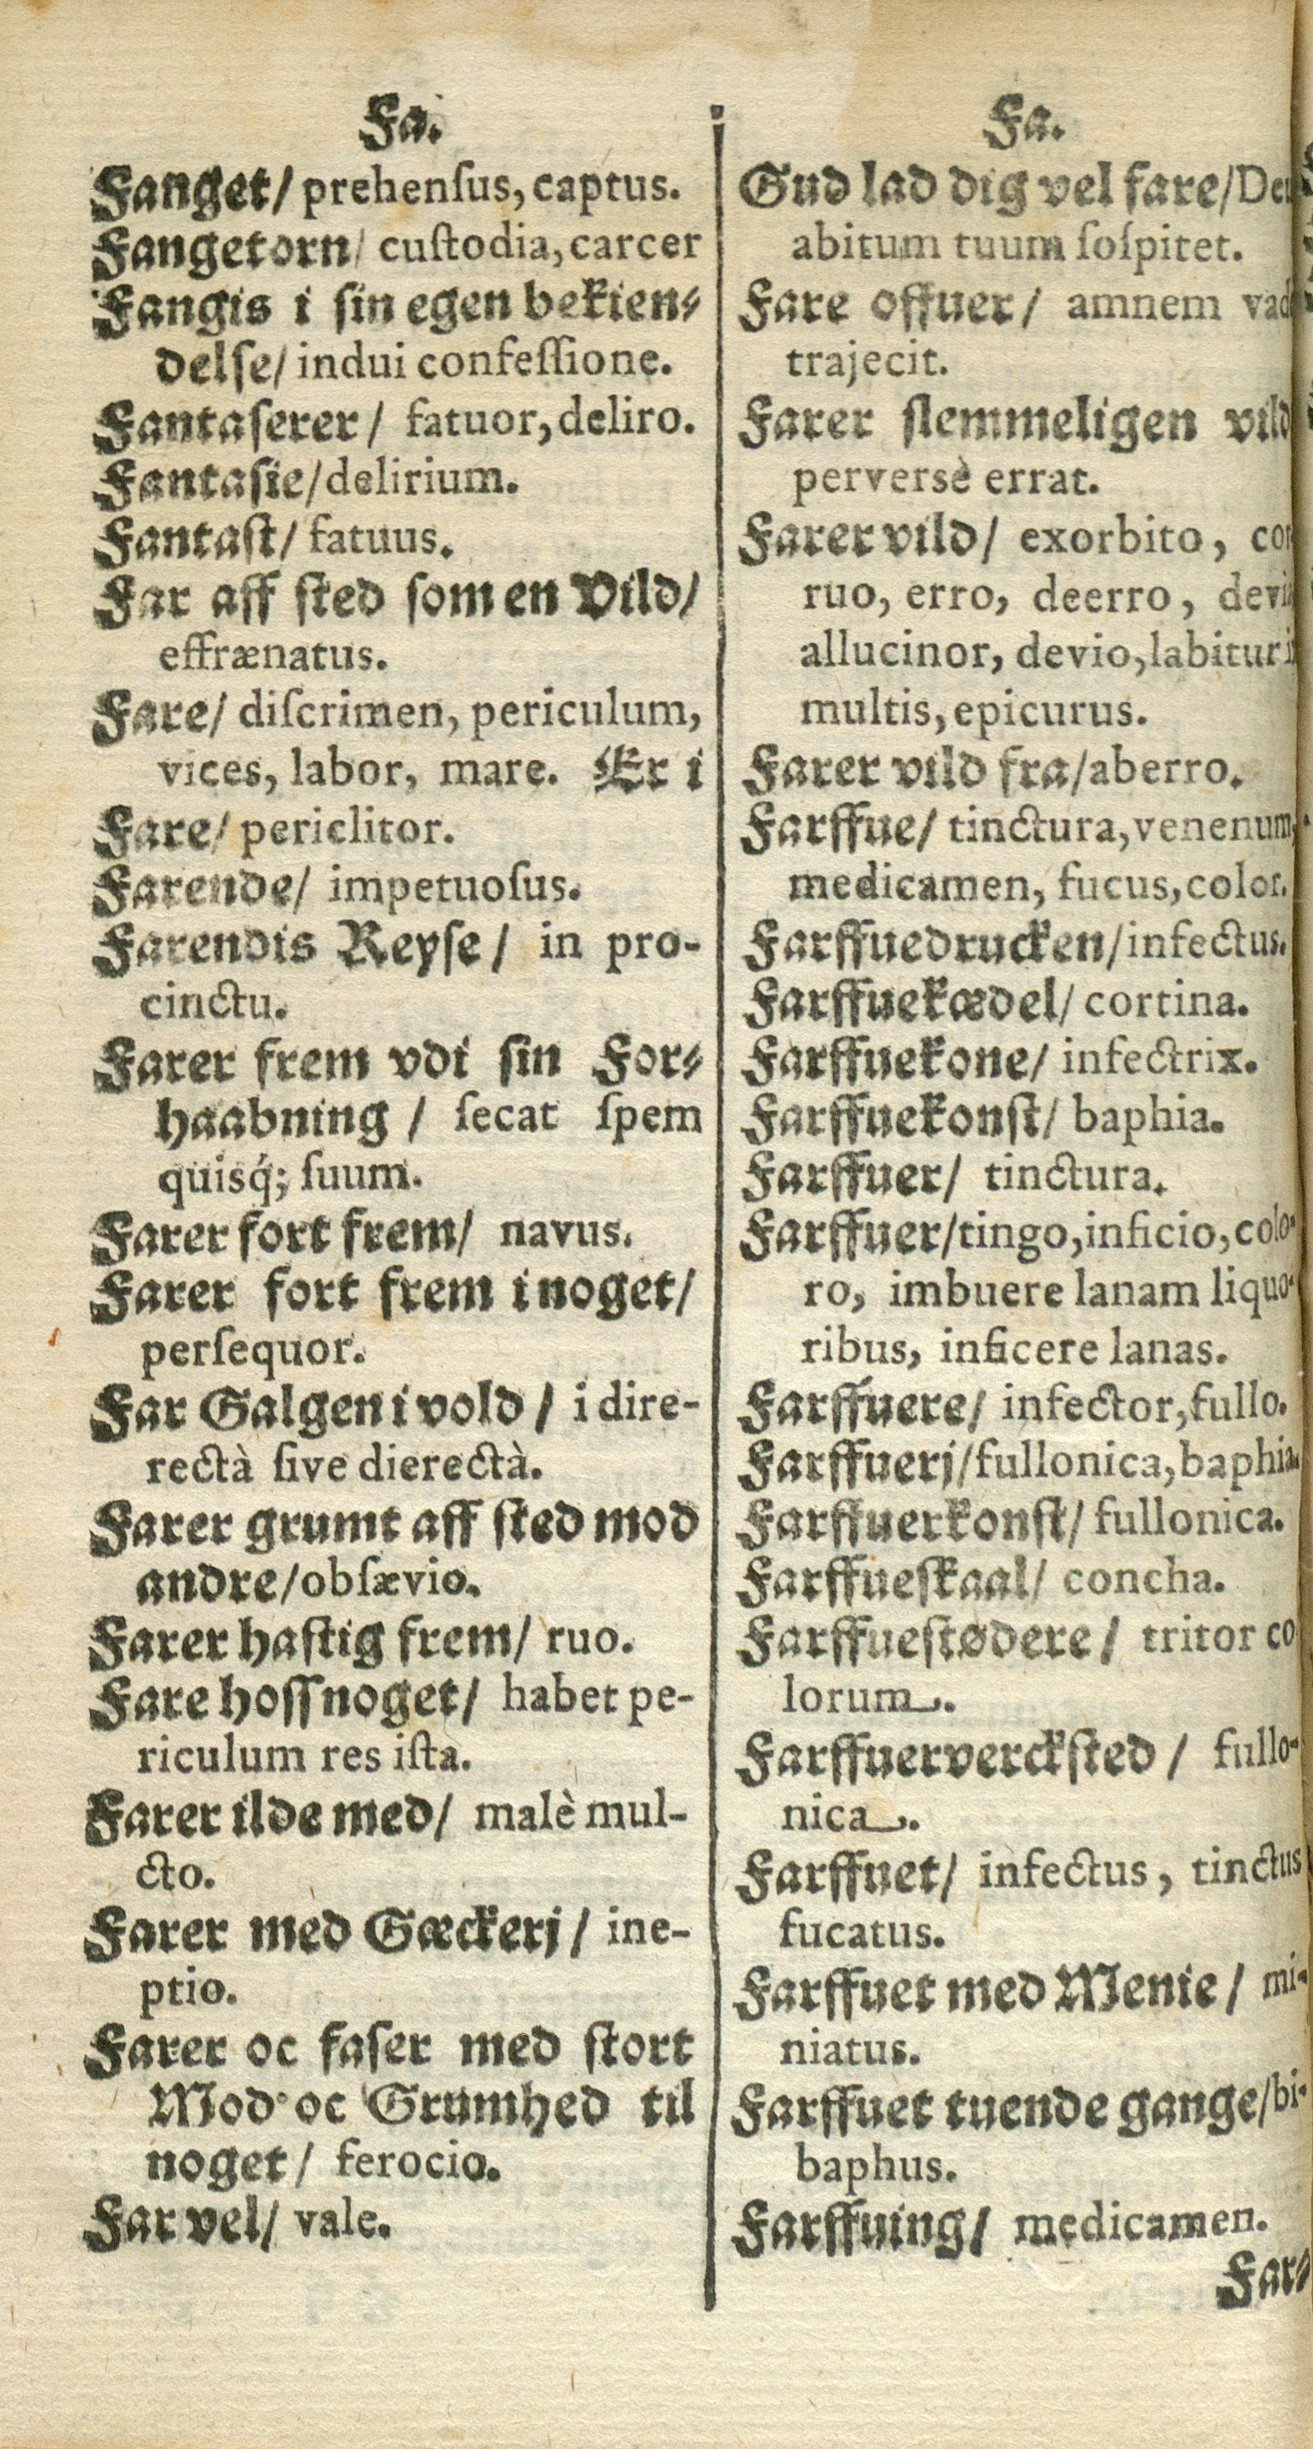 Fa.
Fanget/ prehenſus, captus.
Fangetorn/ cuſtodia, carcer
Fangis i ſin egen bekien⸗
delſe/ indui confeſſione.
Fantaſerer/ fatuor, deliro.
Fantaſie/ delirium.
Fantaſt/ fatuus.
Far aff ſted ſom en Vild/
effrænatus.
Fare/ diſcrimen, periculum,
vices, labor, mare. Er i
Fare/ periclitor.
Farende/ impetuoſus.
Farendis Reyſe/ in pro-
cinctu.
Farer frem vdi ſin For⸗
haabning/ ſecat ſpem
quisq́; ſuum.
Farer fort frem/ navus.
Farer fort frem i noget/
perſequor.
Far Galgen i vold/ i dire-
rectà ſive dierectà.
Farer grumt aff ſted mod
andre/ obſævio.
Farer haſtig frem/ ruo.
Fare hoſſ noget/ habet pe-
riculum res iſta.
Farer ilde med/ malè mul-
cto.
Farer med Gæckerj/ ine-
ptio.
Farer oc faſer med ſtort
Mod oc Grumhed til
noget/ ferocio.
Far vel/ vale.
Fa.
Gud lad dig vel fare/
abitum tuum ſoſpitet.
Fare offuer/ amnem
trajecit.
Farer ſlemmeligen vild
perversè errat.
Farer vild/ exorbito,
ruo, erro, deerro,
allucinor, devio, labitur
multis, epicurus.
Farer vild fra/ aberro.
Farffue/ tinctura, venenum,
medicamen, fucus, color.
Farffuedrucken/ infectus.
Farffuekædel/ cortina.
Farffuekone/ infectrix.
Farffuekonſt/ baphia.
Farffuer/ tinctura.
Farffuer/ tingo, inficio, colo-
ro, imbuere lanam liquo-
ribus, inficere lanas.
Farffuere/ infector, fullo.
Farffuerj/ fullonica, baphia.
Farffuerkonſt/ fullonica.
Farffueſkaal/ concha.
Farffueſtødere/ tritor co
lorum.
Farffuerverckſted/ fullo-
nica.
Farffuet/ infectus, tinctus
fucatus.
Farffuet med Menie/ mi-
niatus.
Farffuet tuende gange/ bi-
baphus.
Farffuing/ medicamen.
Far⸗